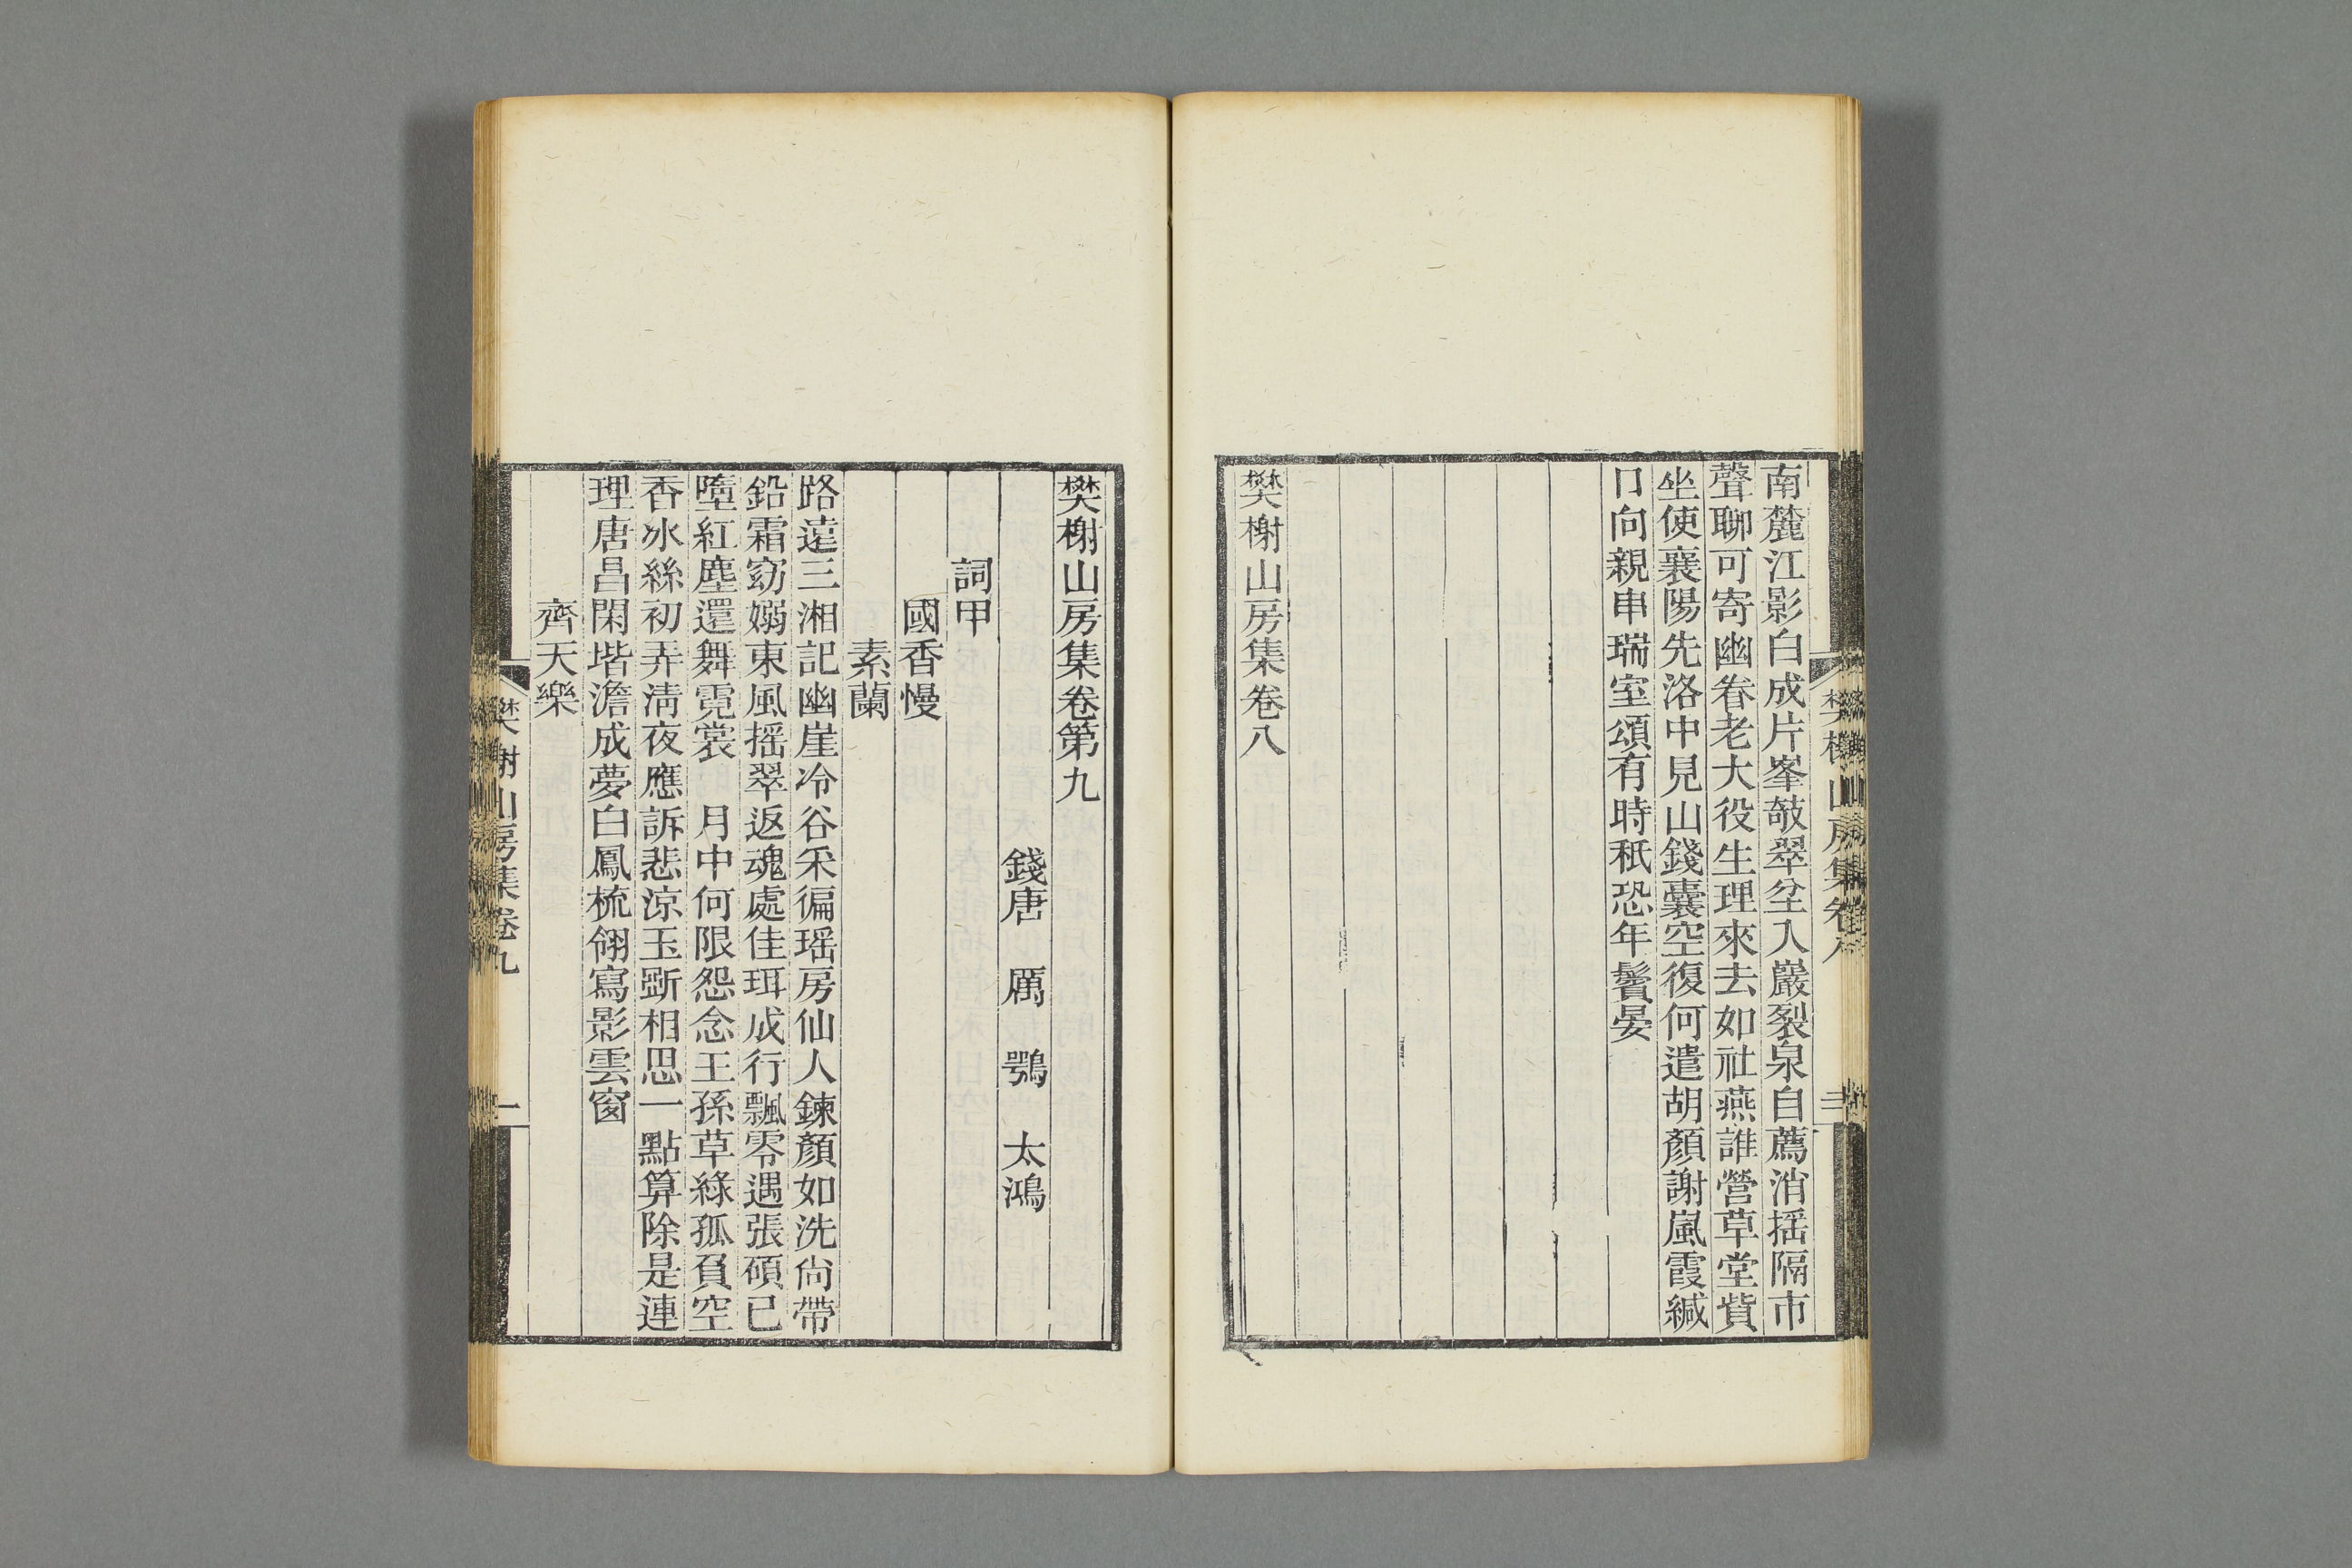 南麓江影白成片峯攲翠坌入巖裂泉自薦消揺隔市
聲聊可寄幽眷老大役生理來去如社燕誰營草堂貲
坐使襄陽先洛中見山錢囊空復何遣胡顏謝嵐霞緘
口向親串瑞室頌有時秖恐年鬢晏
樊榭山房集卷八
樊榭山房集卷第九
錢唐 厲 鶚 太鴻
詞甲
國香慢
素蘭
路遠三湘記幽崖冷谷采徧瑶房仙人鍊顏如洗尙帶
鉛霜窈嫋東風揺翠返魂處佳珥成行飄零遇張碩已
墮紅塵還舞霓裳 月中何限怨念王孫草綠孤負空
香冰絲初弄淸夜應訴悲涼玉斲相思一點算除是連
理唐昌閑堦澹成夢白鳳梳翎寫影雲窗
齊天樂
樊榭山房集卷九
一